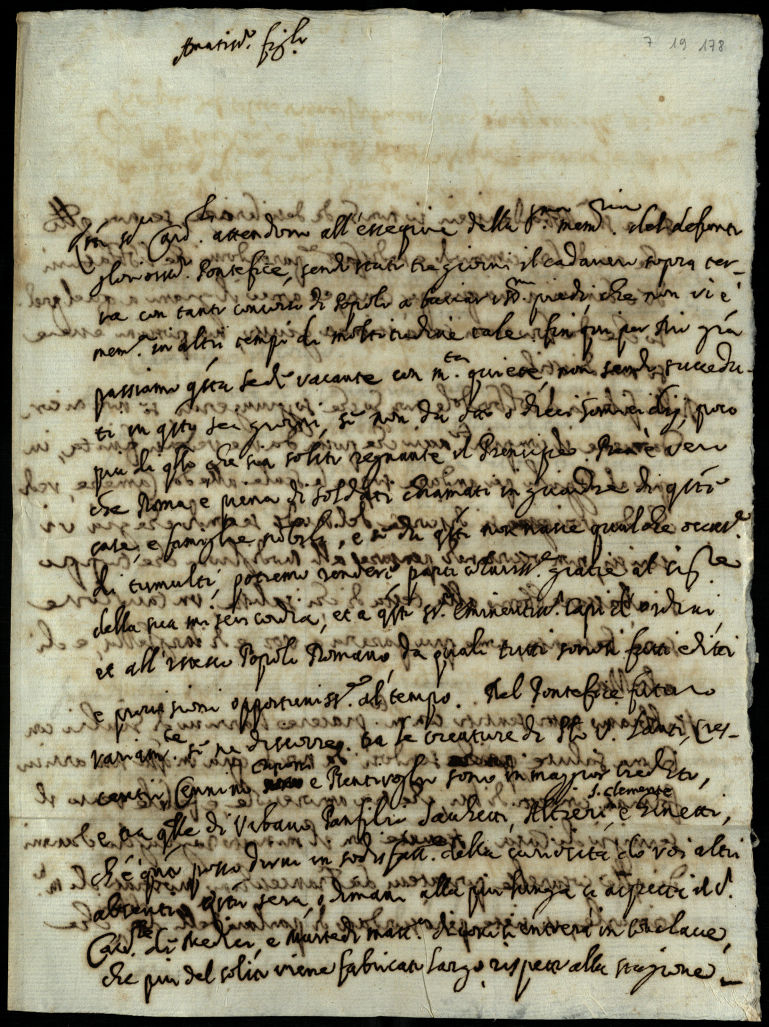 Amatis.mi figli
7 19 178
attendono all'essequie della S.ta mem.a del defonto
glorioso Pontefice, sendo stato tre giorni il cadavere sopra ter-
ra con tanto concorso di Popolo a baciar piedi che non vi è
mem.a in altri tempi di moltitudine tale, fin qui per Dio gra
passiamo q.sta sede vacante con m.ta quiete, non sendo succedu-
ti in q.sto sei giorni, se non da otto o dieci homicidij, poco
più di q.llo che son soliti regnante il Principe. Però è vero
che Roma è piena di soldati chiamati in guardia di q.ste
case, e famiglie nobili, e se da q.sti non nasce qualche occas.e
di tumulti, potremo rendere gratie al
della sua misericordia, et a q.sti s.ri Eminentis.mi capi d'ordini
et all'istesso Popolo Romano, da quali tutti sono fatti editti
e provisioni opportuniss.e al tempo. Del Pontefice futuro
variam.te se ne discorre, tra le creature di P.lo V. Lanti, Cres-
centio, Cennino, Capponi e Bentivoglio sono in maggior credito,
S. Clemente
e tra q.lle di Urbano Panfilio Sacchetti, Altieri, e Ginetti,
ch'è q.to posso dirvi in sodisfatt.e della curiosità di voi altri
absenti. Questa sera, o dimani alla più lunga si aspetta il S.
Card.le de Medici, e Martedi matt.a di poi si entrerà in Conclave,
che più del solito viene fabricato largo rispetto alla stagione